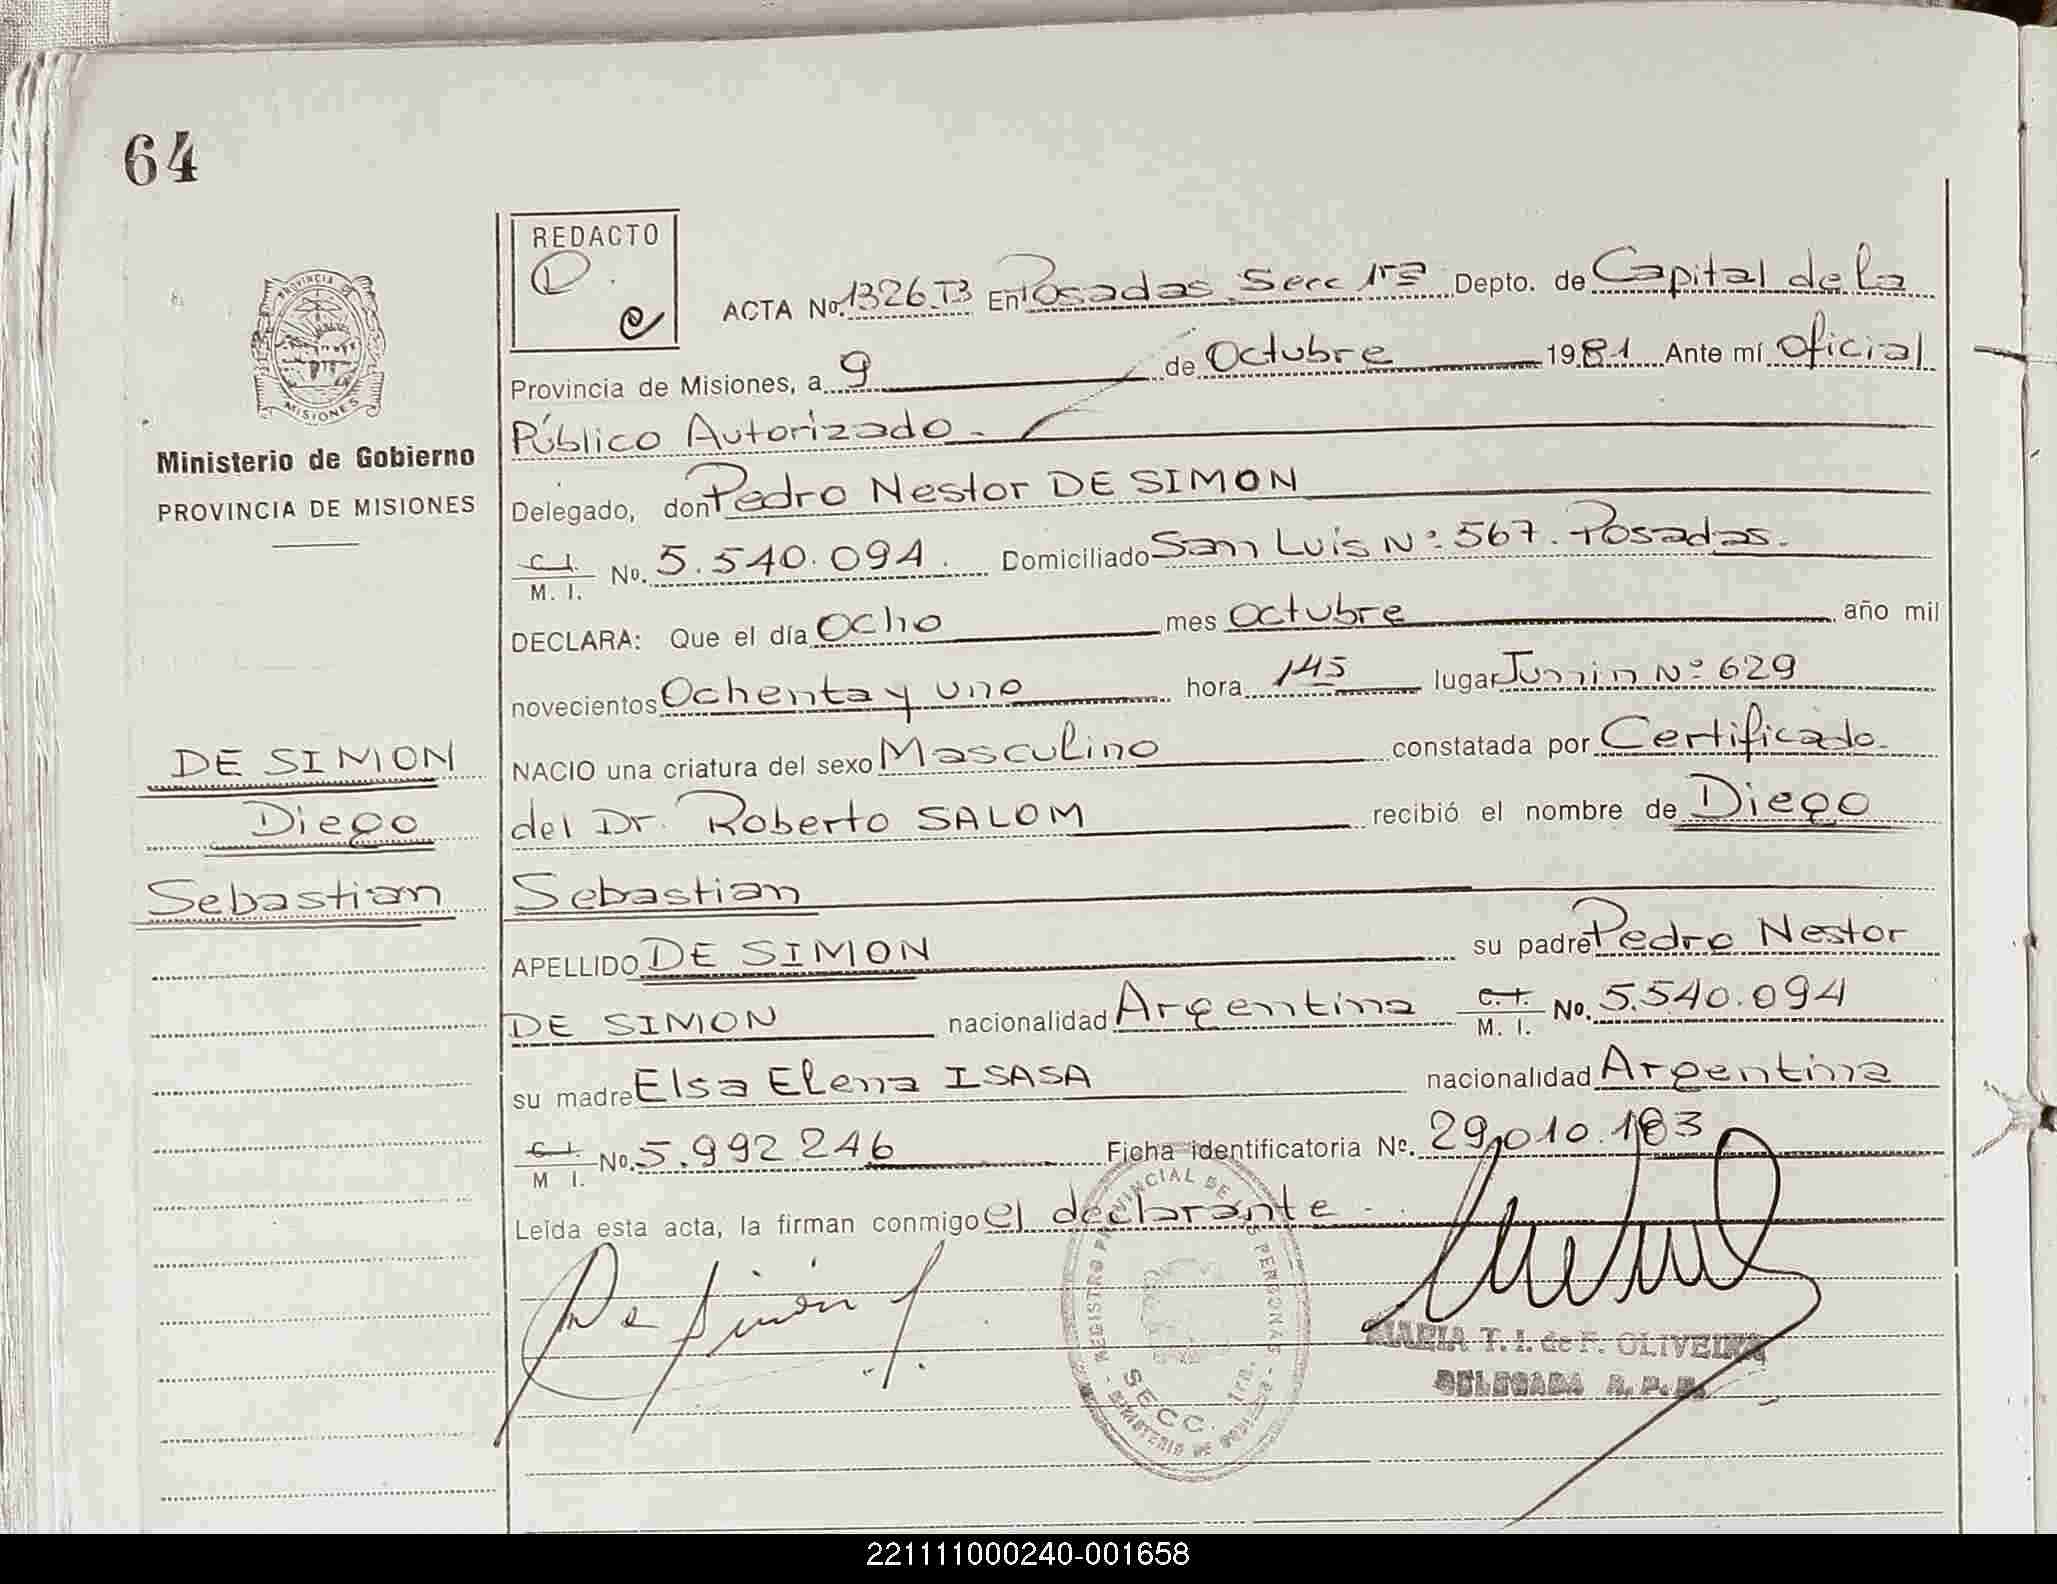 64
REDACTO
D.
e
PROVINCIA DE
MISIONES
Ministerio de Gobierno
PROVINCIA DE MISIONES
DE SIMON
Diego
Sebastian
ACTA No. 1326 T3 En Posadas. Secc 1ra Depto. de Capital de la
Provincia de Misiones, a 9 de Octubre 1981 Ante mí Oficial
Público Autorizado.-
Delegado, don Pedro Nestor DE SIMON
C. I. M. I. No. 5.540.094. Domiciliado San Luis Nº: 567. Posadas.
DECLARA: Que el día Ocho mes octubre año mil
novecientos Ochenta y uno hora 145 lugar Junin Nº: 629
NACIO una criatura del sexo Masculino constatada por Certificado
del Dr. Roberto SALOM recibió el nombre de Diego
Sebastian
APELLIDO DE SIMON su padre Pedro Nestor
DE SIMON nacionalidad Argentina C. I. M. I. No. 5.540.094
su madre Elsa Elena ISASA nacionalidad Argentina
C. I. M I. No. 5.992 246 Ficha identificatoria Nº. 29.010.183
Leída esta acta, la firman conmigo el declarante.
De Simón
REGISTRO PROVINCIAL DE LAS PERSONAS - MINISTERIO DE GOBIERNO -
SECC. 1ra.
MARIA T. I. de F. OLIVEIRA
DELEGADA R. P. P.
221111000240-001658